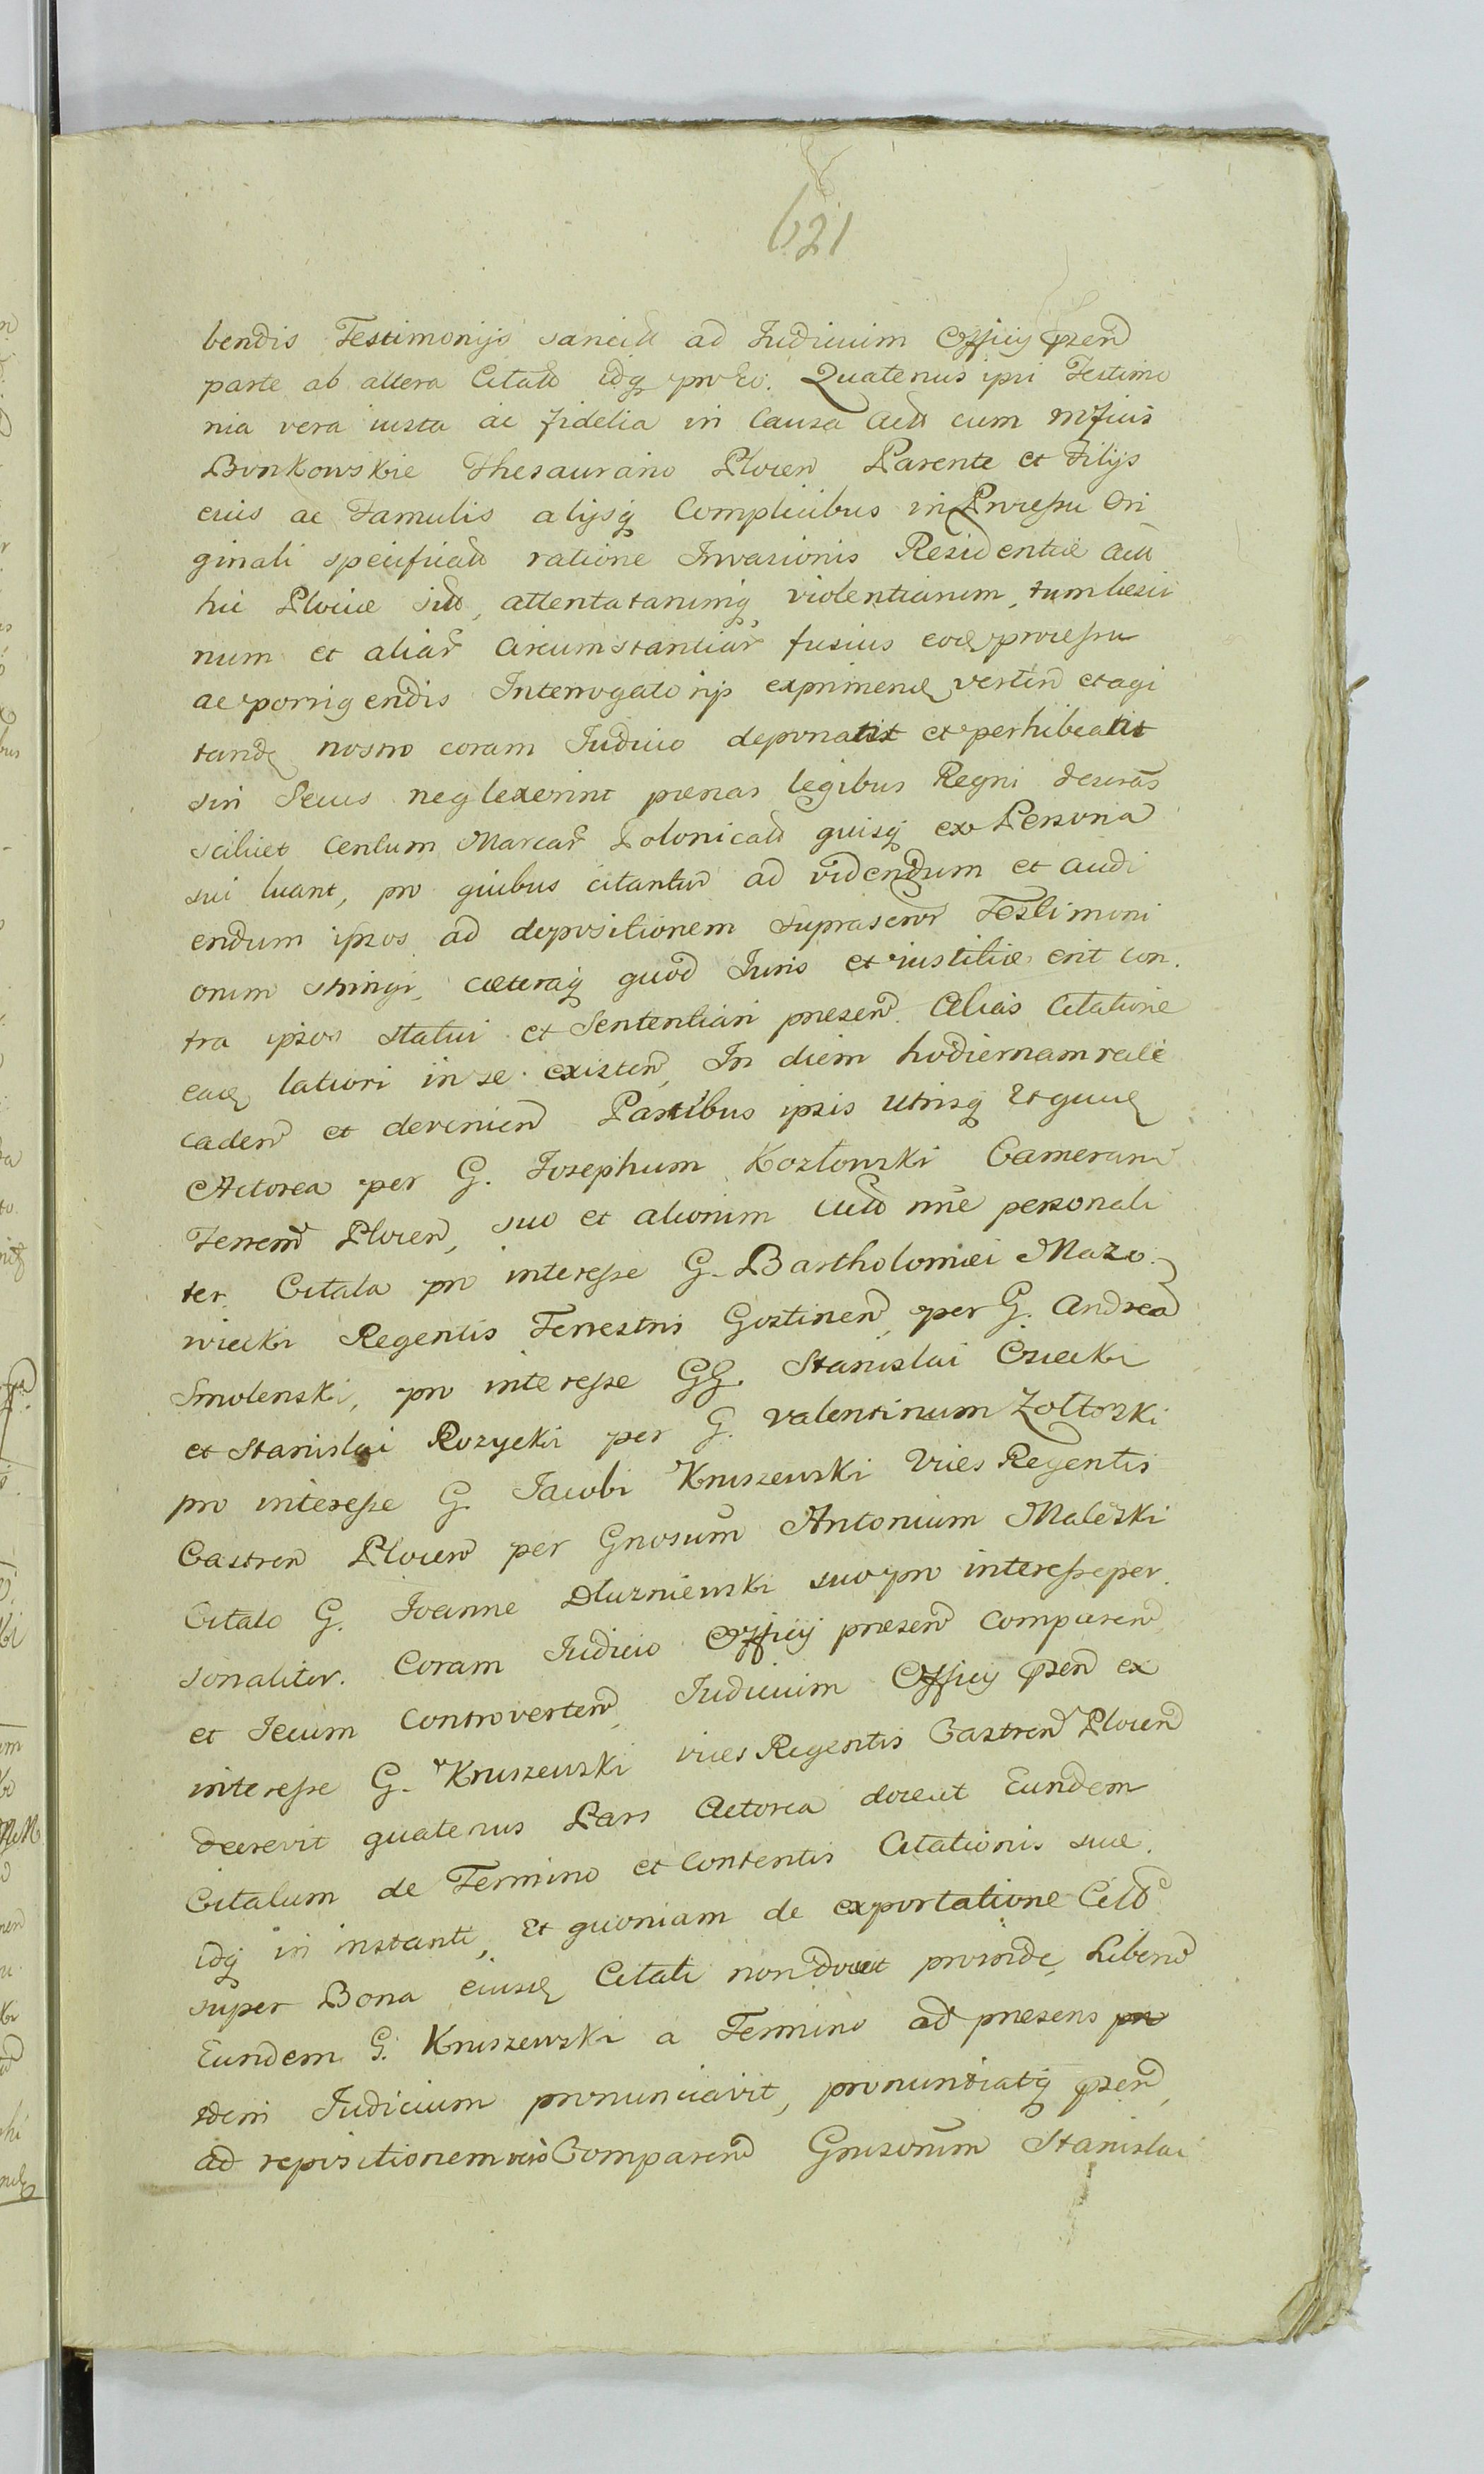 621
bendis Testimonijs sancitt ad Iudicium Officij pzen
parte ab altera Citatt idq pro eo. Quatenus ipsi Testimo
nia vera iusta ac fidelia in Causa actt cum mfius
Bonkowskie Thesaurario Plocen Parente et Filijs
eius ac Famulis alijsq Complicibus in Processu Ori
ginali specificatt ratione Invasionis Residentiæ actt
hic Plociæ sitt, attentatarumq violentiarum, tum læsio
num et aliar circumstantiar fusius eod processu
ac porrigendis Interrogatorijs exprimend vertend et agi
tand nostro coram Iudicio deponant et perhibeant
sin secus neglexerint pænas legibus Regni descras
scilicet Centum Marcar Polonicatt quisq ex Persona
sui luant, pro quibus citantur ad videndum et audi
endum ipsos ad depositionem suprascrar Testimoni
orum stringi, cæteraq quod Iuris et iustitiæ erit con.
tra ipsos statui et Sententiari præsen. Alias Citatione
ead latiori in se existen, In diem hodiernam rite
caden et devenien Partibus ipsis utrisq et quid
Actorea per G. Josephum Kozłowski Camerari
Terrem Plocen, suo et aliorum cutt nne personali
ter. Citata pro interesse G. Bartholomæi Mazo
wiecki Regentis Terrestris Gostinen, per G. Andrea
Smolenski, pro interesse GG. Stanislai Csiecki
et Stanislai Rozycki per G. Valentinum Zoltoski
pro interesse G. Jacobi Kruszewski Vices Regentis
Castren Plocen per Gnosum Antonium Maleski
Citato G. Joanne Dluzniewski suo pro interesse per
sonaliter. Coram Iudicio Officij præsen comparen
et secum Controverten, Iudicium Officij pzen ex
interesse G. Kruszewski vices Regentis Castren Plocen
decrevit quatenus Pars Actorea doceat Eundem
Citatum de Termino et Contentis Citationis suæ.
idq in instanti, Et quoniam de exportatione
super Bona eiusd Citati non docet proinde Liberu
Eundem G. Kruszewski a Termino ad præsens
idem Iudicium pronunciavit, pronunciatq pzen,
ad repositionem vero Comparen Gnosorum Stanislai